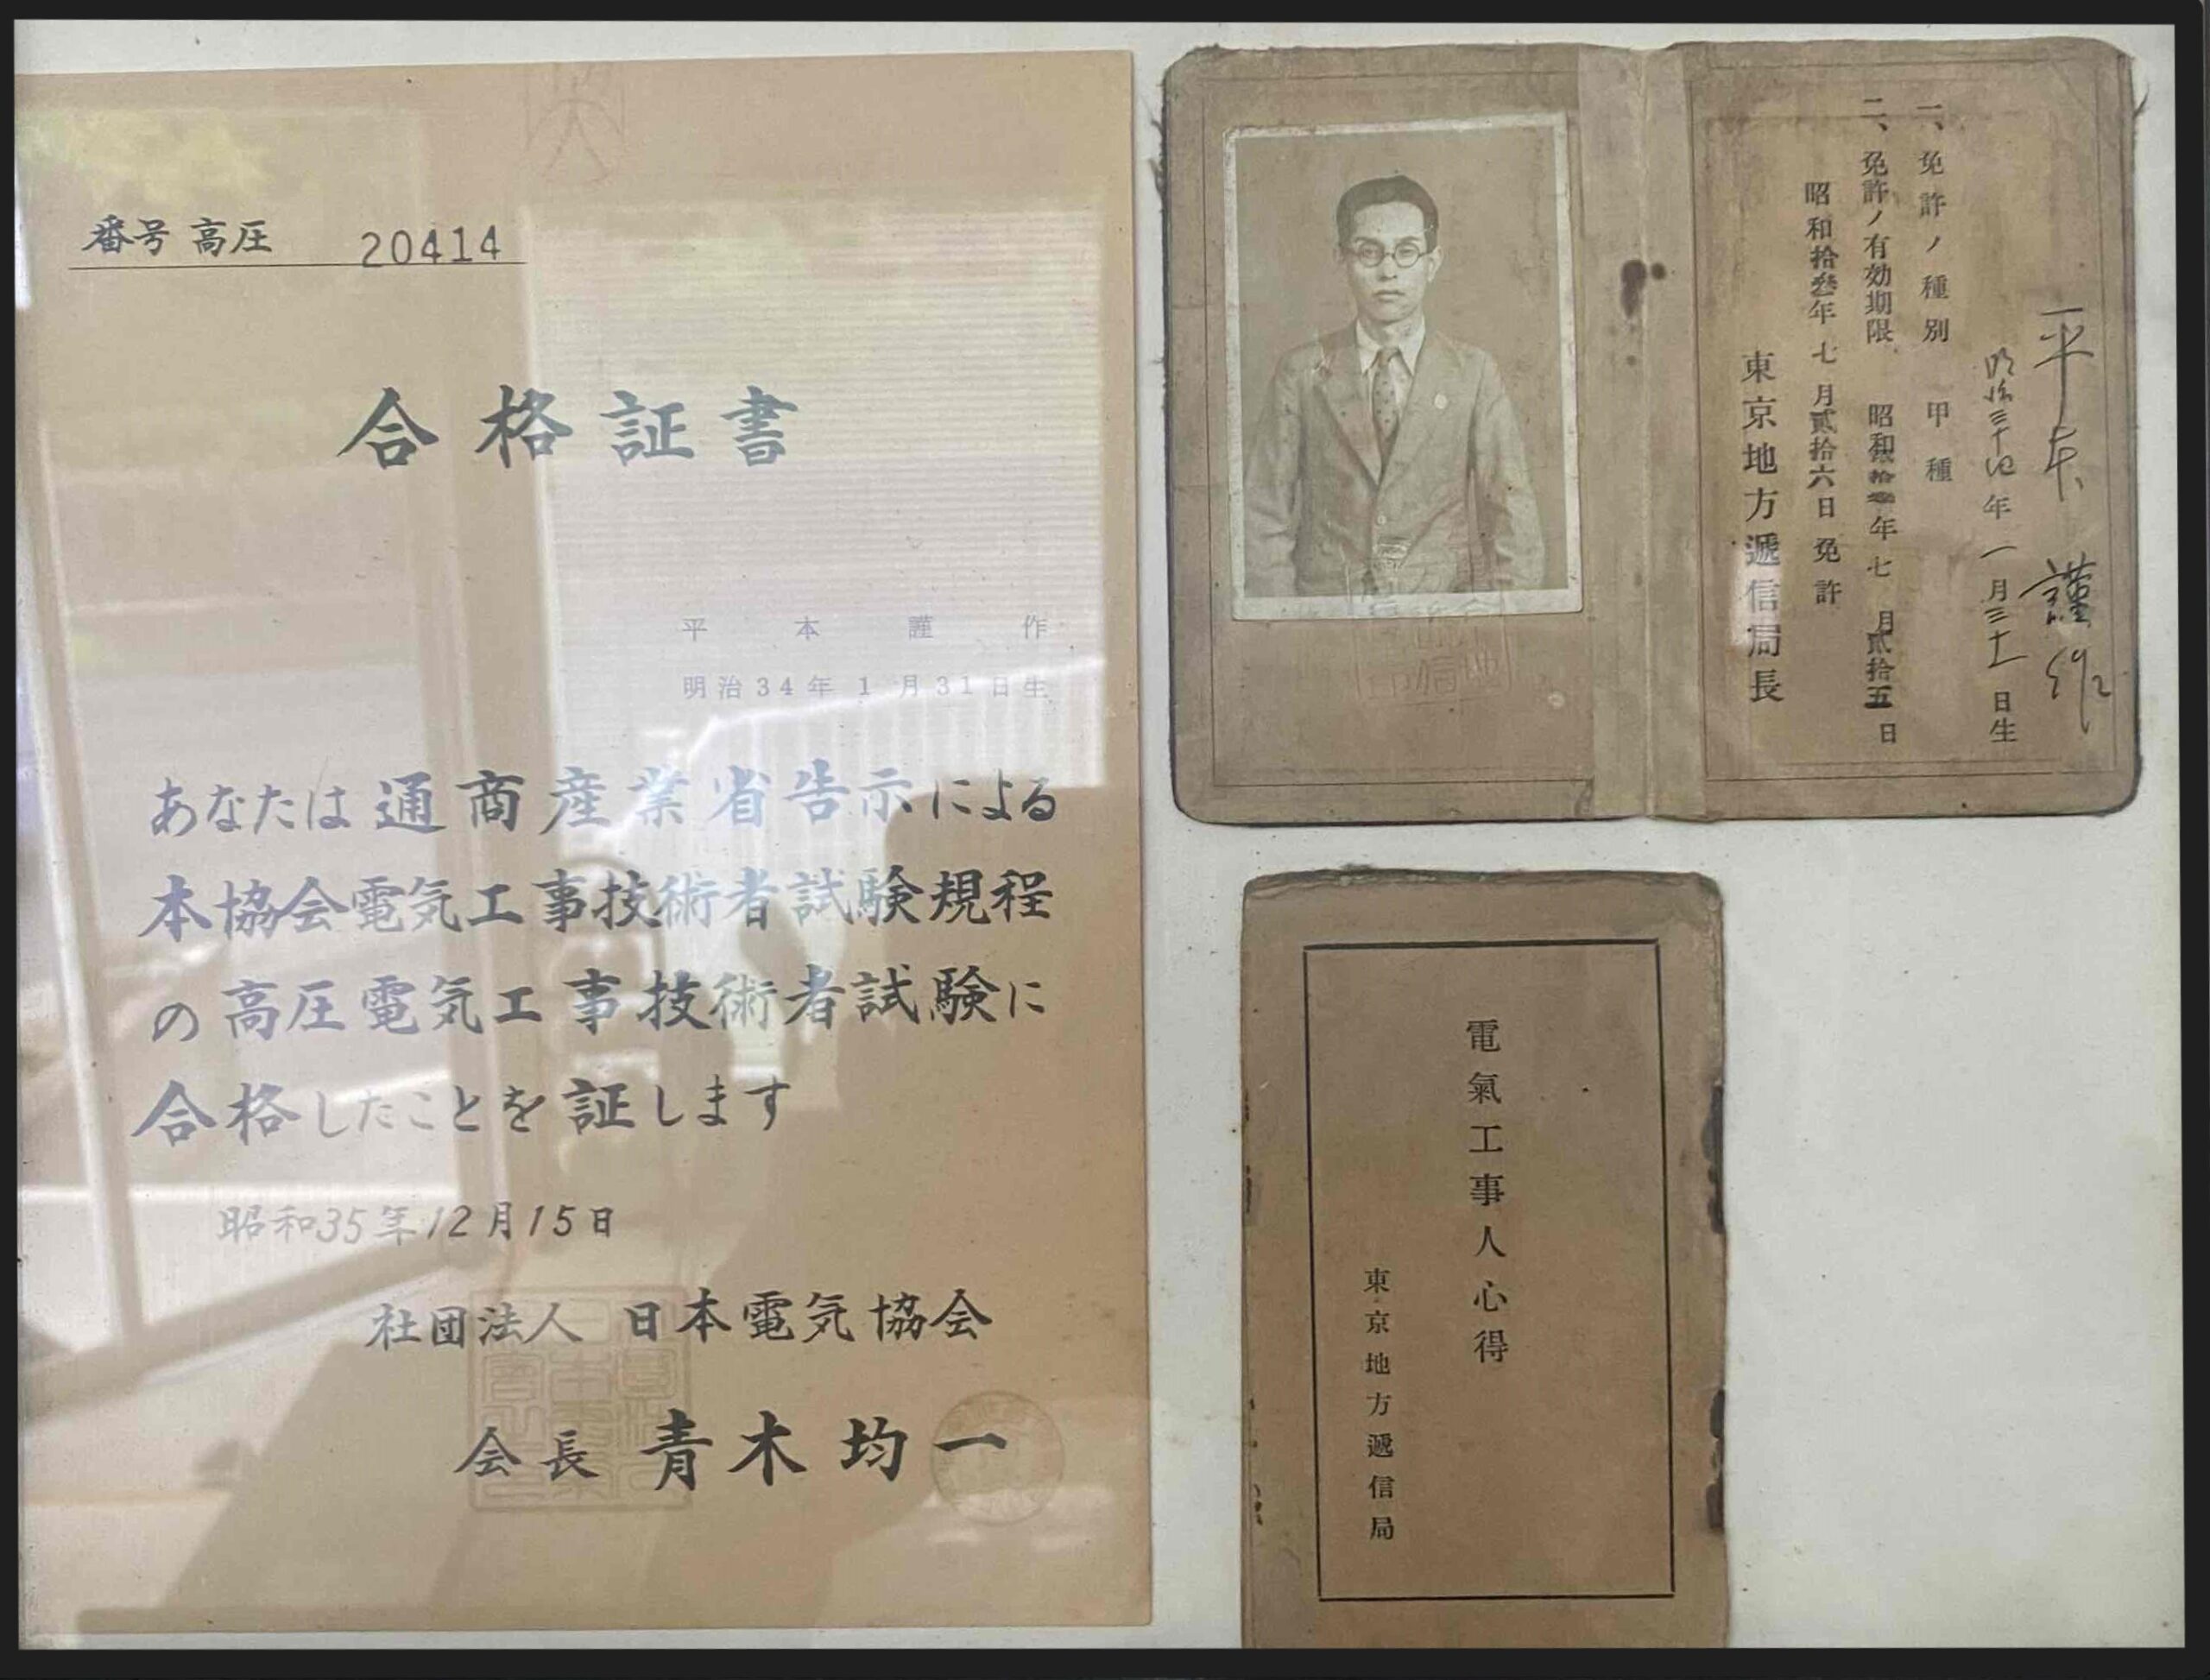 番号 高圧 20414
合格証書
平本謹作
明治34年1月31日生
あなたは通商産業省告示による
本協会電気工事技術者試験規程
の高圧電気工事技術者試験に
合格したことを証します
昭和35年12月15日
社団法人 日本電気協会
会長 青木均一
平本 謹作
明治三十四年一月三十一日生
一、免許ノ種別 甲種
二、免許ノ有効期限 昭和 年七月貳拾五日
昭和拾叄年七月貳拾六日免許
東京地方遞信局長
電氣工事人心得
東京地方遞信局